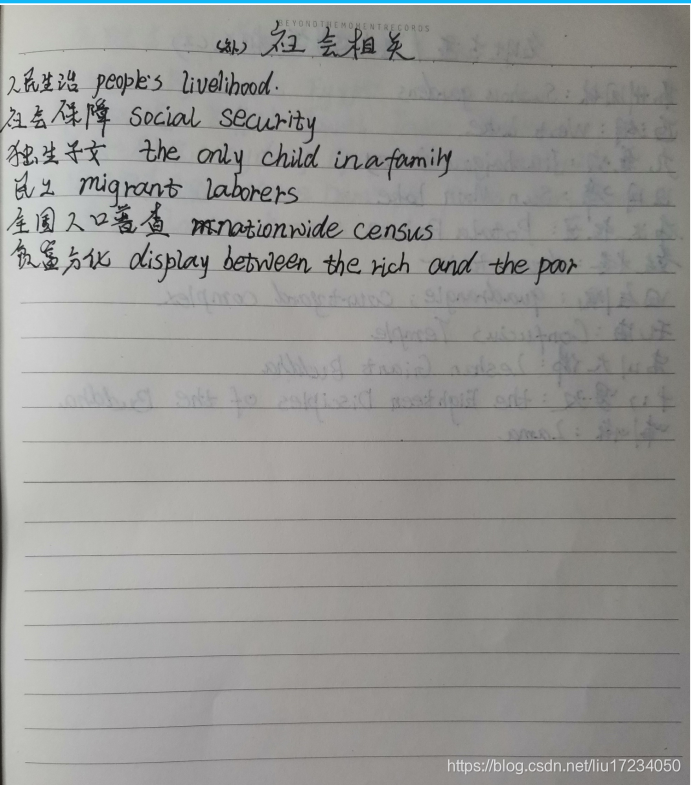 BEYONDTHEMOMENTRECORDS
(补) 社会相关
人民生活 people's livelihood.
社会保障 social security
独生子女 the only child in a family
民工 migrant laborers
全国人口普查 nationwide census
贫富分化 display between the rich and the poor
https://blog.csdn.net/liu17234050